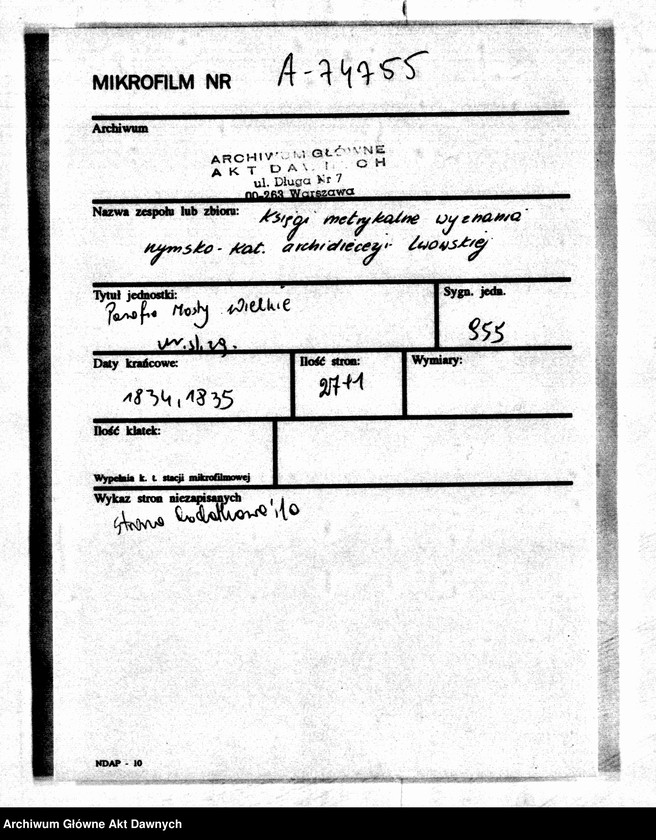 MIKROFILM NR A-74755
Archiwum
ARCHIWUM GŁÓWNE
AKT DAWNYCH
ul. Długa Nr 7
00-263 Warszawa
Nazwa zespołu lub zbioru: Księgi metrykalne wyznania
rzymsko-kat. archidiecezji lwowskiej
Tytuł jednostki:
Parafia Mosty Wielkie
ur. śl. zg.
Sygn. jedn.
955
Daty krańcowe:
1834, 1835
Ilość stron:
27+1
Wymiary:
Ilość klatek:
Wypełnia k. t. stacji mikrofilmowej
Wykaz stron niezapisanych
strona dodatkowa
NDAP - 10
Archiwum Główne Akt Dawnych